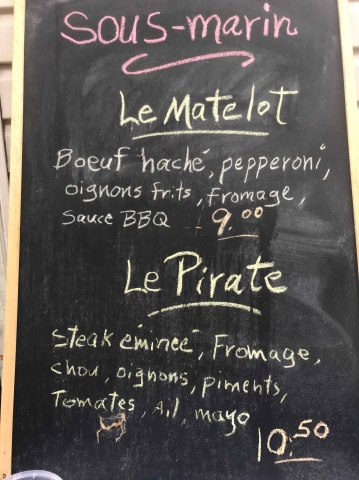 Sous-marin
Le Matelot
Boeuf haché, pepperoni,
oignons frits, fromage,
Sauce BBQ 9.00
Le Pirate
Steak émincé, Fromage,
chou, oignons, piments,
Tomates, Ail, mayo
10.50